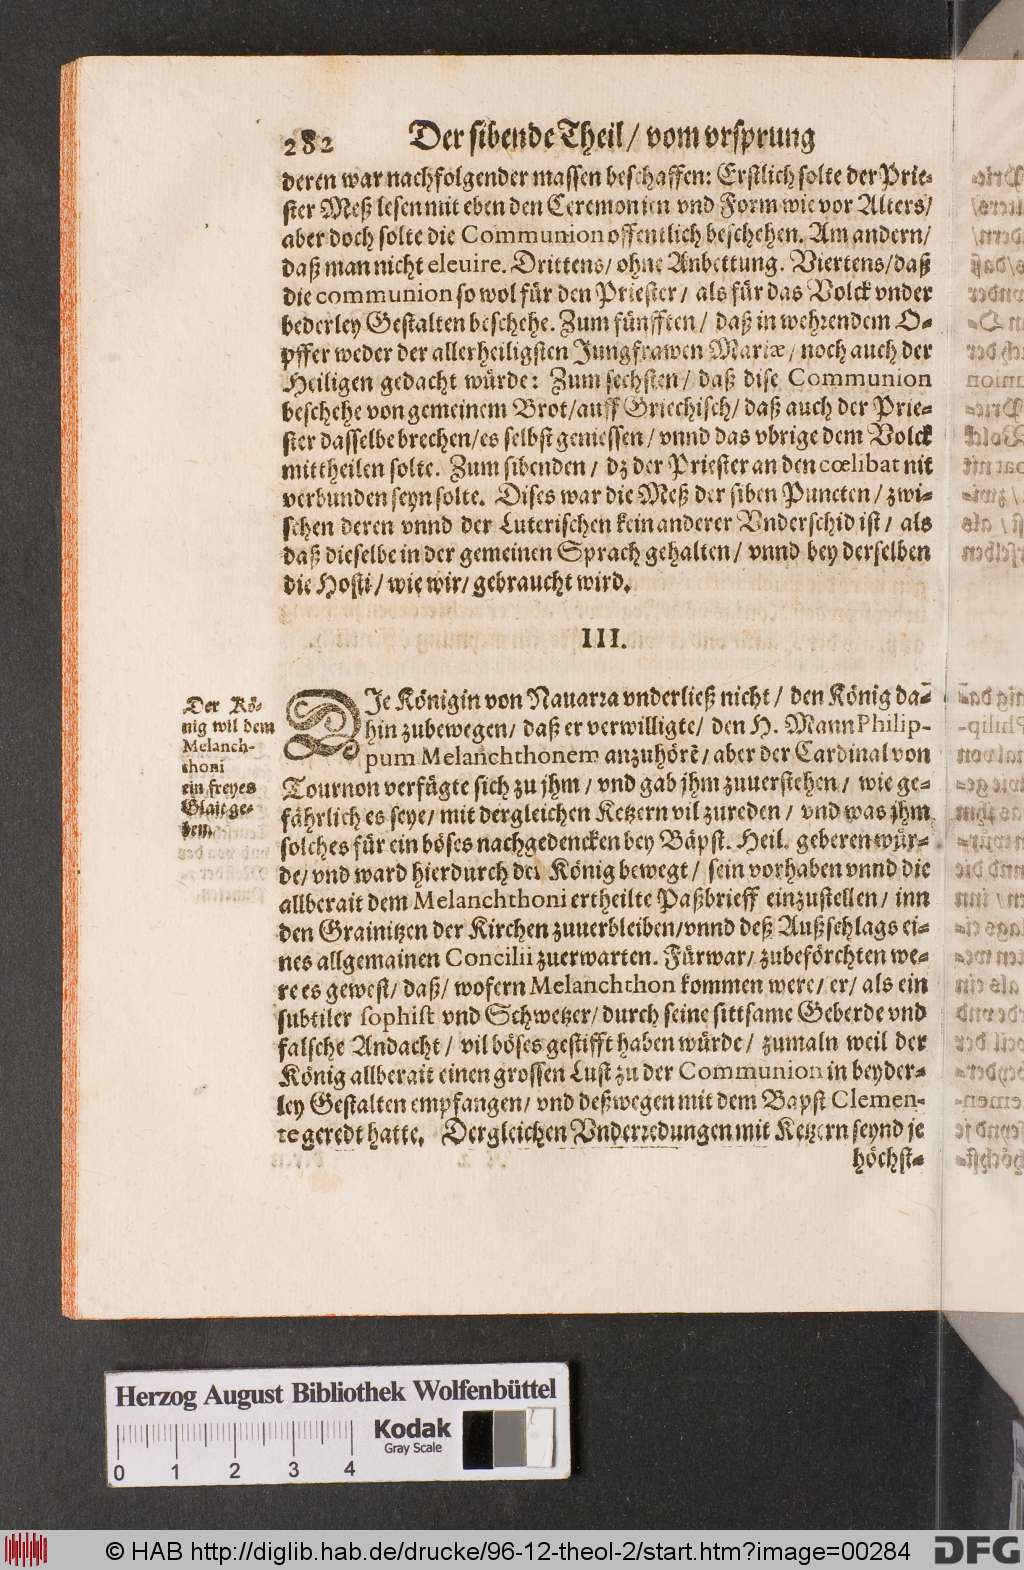 282 Der sibende Theil / vom vrsprung
deren war nachfolgender massen beschaffen: Erstlich solte der Prie-
ster Meß lesen mit eben den Ceremonien vnd Form wie vor Alters /
aber doch solte die Communion offentlich beschehen. Am andern /
daß man nicht eleuire. Drittens / ohne Anbettung. Viertens / daß
die communion so wol für den Priester / als für das Volck vnder
bederley Gestalten beschehe. Zum fünfften / daß in wehrendem O-
pffer weder der allerheiligsten Jungfrawen Mariæ / noch auch der
Heiligen gedacht würde: Zum sechsten / daß dise Communion
beschehe von gemeinem Brot / auff Griechisch / daß auch der Prie-
ster dasselbe brechen / es selbst geniessen / vnnd das vbrige dem Volck
mittheilen solte. Zum sibenden / dz der Priester an den cœlibat nit
verbunden seyn solte. Dises war die Meß der siben Puncten / zwi-
schen deren vnnd der Luterischen kein anderer Vnderschid ist / als
daß dieselbe in der gemeinen Sprach gehalten / vnnd bey derselben
die Hosti / wie wir / gebraucht wird.
III.
Der Kö-
nig wil dem
Melanch-
thoni
ein freyes
Glait ge-
ben.
DIe Königin von Nauarra vnderließ nicht / den König da-
hin zubewegen / daß er verwilligte / den H. Mann Philip-
pum Melanchthonem anzuhörẽ / aber der Cardinal von
Tournon verfügte sich zu jhm / vnd gab jhm zuuerstehen / wie ge-
fährlich es seye / mit dergleichen Ketzern vil zureden / vnd was jhm
solches für ein böses nachgedencken bey Bäpst. Heil. geberen wür-
de / vnd ward hierdurch der König bewegt / sein vorhaben vnnd die
allberait dem Melanchthoni ertheilte Paßbrieff einzustellen / inn
den Grainitzen der Kirchen zuuerbleiben / vnnd deß Außschlags ei-
nes allgemainen Concilii zuerwarten. Fürwar / zubeförchten we-
re es gewest / daß / wofern Melanchthon kommen were / er / als ein
subtiler sophist vnd Schwetzer / durch seine sittsame Geberde vnd
falsche Andacht / vil böses gestifft haben würde / zumaln weil der
König allberait einen grossen Lust zu der Communion in beyder-
ley Gestalten empfangen / vnd deßwegen mit dem Bapst Clemen-
te geredt hatte. Dergleichen Vnderredungen mit Ketzern seynd je
höchst-
Herzog August Bibliothek Wolfenbüttel
Kodak
Gray Scale
0 1 2 3 4
© HAB http://diglib.hab.de/drucke/96-12-theol-2/start.htm?image=00284
DFG